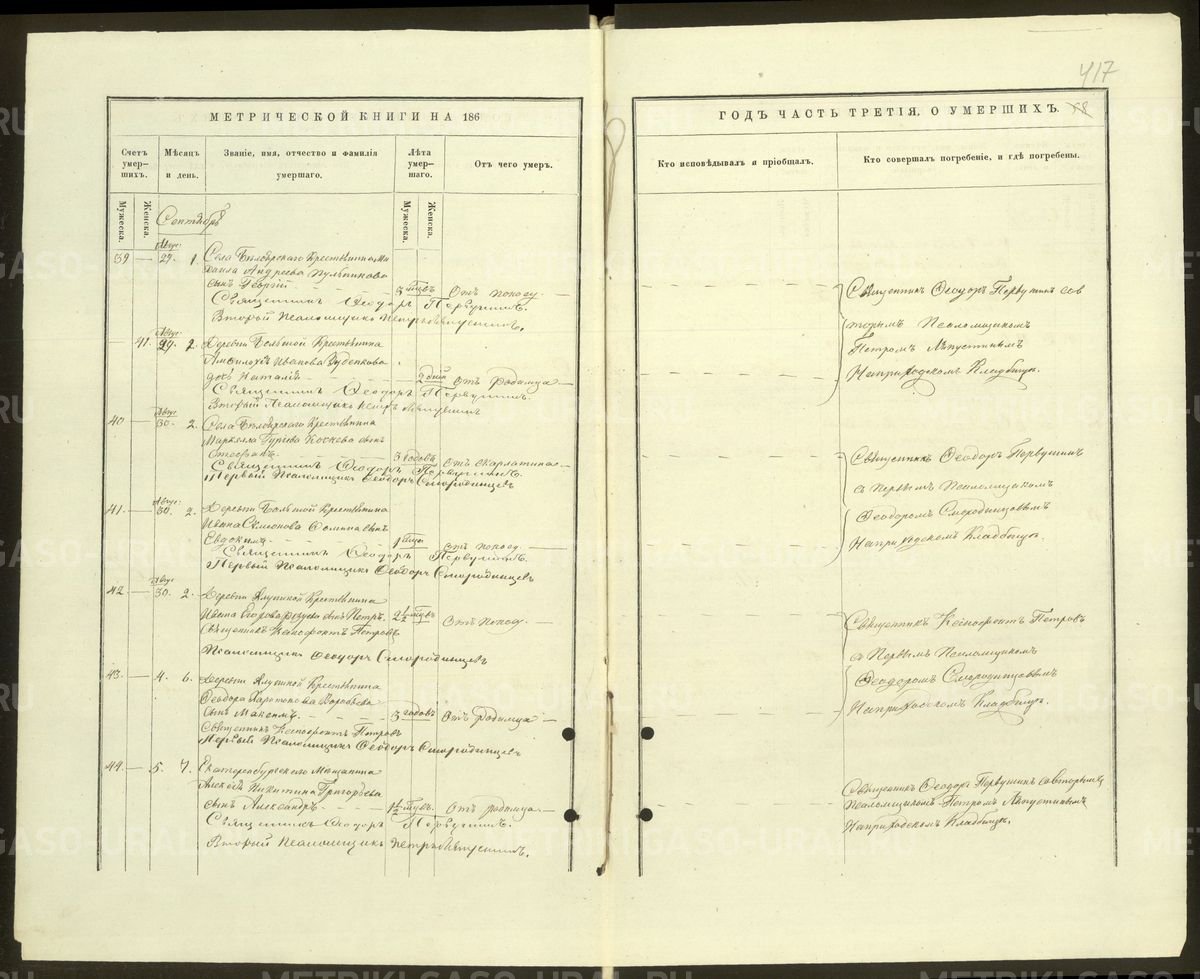 417
МЕТРИЧЕСКОЙ КНИГИ НА 186
Счетъ умер-шихъ.
Мѣсяцъ и день.
Званіе, имя, отчество и фамилія умершаго.
Лѣта умер-шаго.
Отъ чего умеръ.
Мужеска.
Женска.
Мужеска.
Женска.
Сентябрь
Авгус.
39 — 29. 1. Села Бѣлоярскаго Крестьянина Ми
хаила Андреева
сынъ Георгій 3 мцъ Отъ поносу.
Священникъ Ѳеодоръ Первушинъ.
Второй Псаломщикъ Петръ
Авгус.
41. 29. 2. Деревни Большой Крестьянина
Иванова
дочь Наталія 2 дней Отъ родимца
Священникъ Ѳеодоръ Первушинъ.
Второй Псаломщикъ Петръ
Авгус
40 — 30. 2. Села Бѣлоярскаго Крестьянина
Маркелла Гурьева сынъ
3 годовъ Отъ скарлатина
Священникъ Ѳеодоръ Первушинъ.
Первый Псаломщикъ Ѳеодоръ Смородинцевъ
Авгус.
41. — 30. 2. Деревни Большой Крестьянина
Ивана Семенова сынъ
Евдокимъ 1 мцъ Отъ поносу.
Священникъ Ѳеодоръ Первушинъ.
Первый Псаломщикъ Ѳеодоръ Смородинцевъ
Авгус
42 — 30. 2. Деревни Крестьянина
Ивана Егорова сынъ Петръ. 2½ мцъ Отъ поносу.
Священникъ Ксенофонтъ Петровъ
Псаломщикъ Ѳеодоръ Смородинцевъ
43. — 4. 6. Деревни Крестьянина
Ѳеодора Харитонова Воробьева
сынъ Максимъ 3 годовъ Отъ родимца
Священникъ Ксенофонтъ Петровъ
Первый Псаломщикъ Ѳеодоръ Смородинцевъ
44. — 5. 7. Екатеринбургскаго Мѣщанина
Алексѣя Никитина Григорьева
сынъ Александръ 1½ мцъ. Отъ родимца
Священникъ Ѳеодоръ Первушинъ.
Второй Псаломщикъ Петръ
ГОДЪ ЧАСТЬ ТРЕТІЯ. О УМЕРШИХЪ.
Кто исповѣдывалъ и пріобщалъ.
Кто совершалъ погребеніе, и гдѣ погребены.
Священникъ Ѳеодоръ Первушинъ съ в
торымъ Псаломщикомъ
Петромъ
На приходскомъ Кладбищѣ.
Священникъ Ѳеодоръ Первушинъ
съ Первымъ Псаломщикомъ
Ѳеодоромъ Смородинцовымъ
На приходскомъ Кладбищѣ.
Священникъ Ксенофонтъ Петровъ
съ Первымъ Псаломщикомъ
Ѳеодоромъ Смородинцевымъ
На приходскомъ Кладбищѣ.
Священникъ Ѳеодоръ Первушинъ со вторымъ
Псаломщикомъ Петромъ
На приходскомъ Кладбищѣ.
METRIKI.GASO-URAL.RU